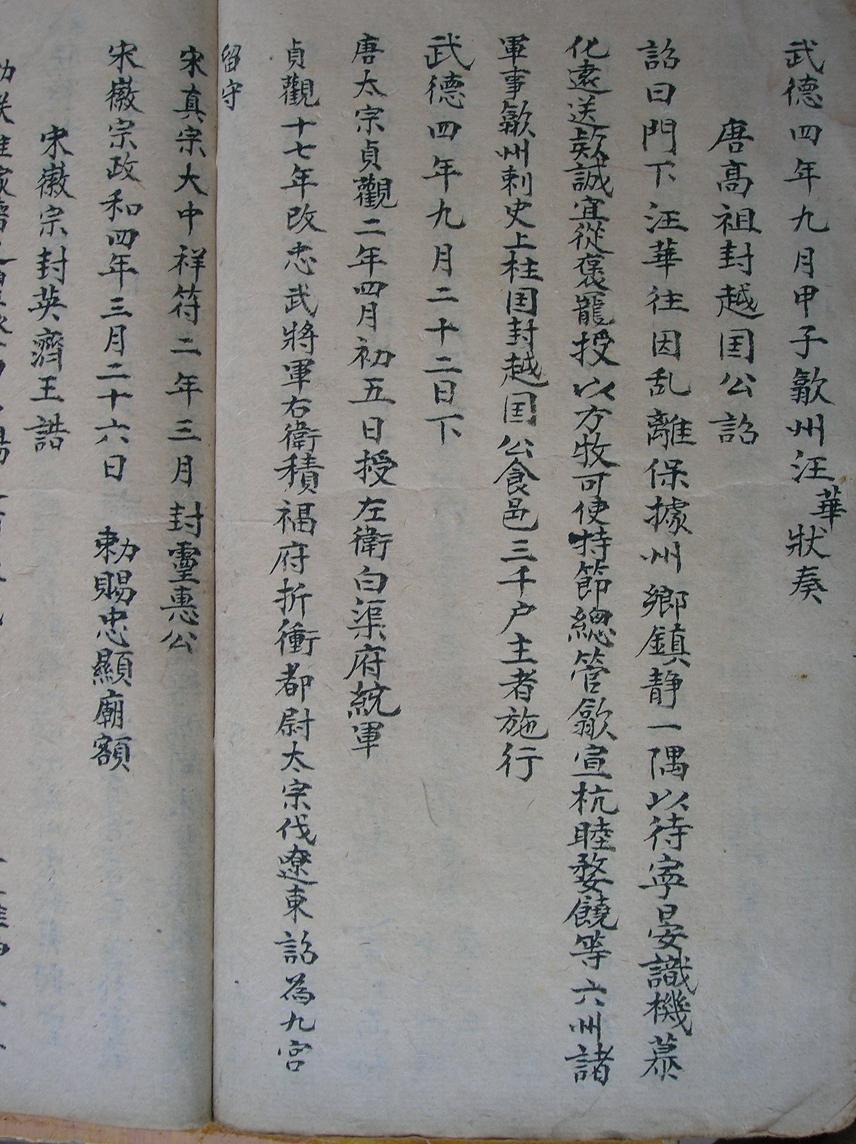 武德四年九月甲子歙州汪華狀奏
唐高祖封越囯公詔
詔曰門下汪華往因乱離保據州鄉鎮静一隅以待寧晏識機慕
化遠送款誠宜從褒寵授以方牧可使持節總管歙宣杭睦婺饒等六州諸
軍事歙州刺史上柱囯封越囯公食邑三千户主者施行
武德四年九月二十二日下
唐太宗貞觀二年四月初五日授左衛白渠府統軍
貞觀十七年改忠武將軍右衛積福府折衝都尉太宗伐遼東詔為九宮
留守
宋真宗大中祥符二年三月封靈惠公
宋徽宗政和四年三月二十六日 勅賜忠顯廟額
宋徽宗封英濟王誥